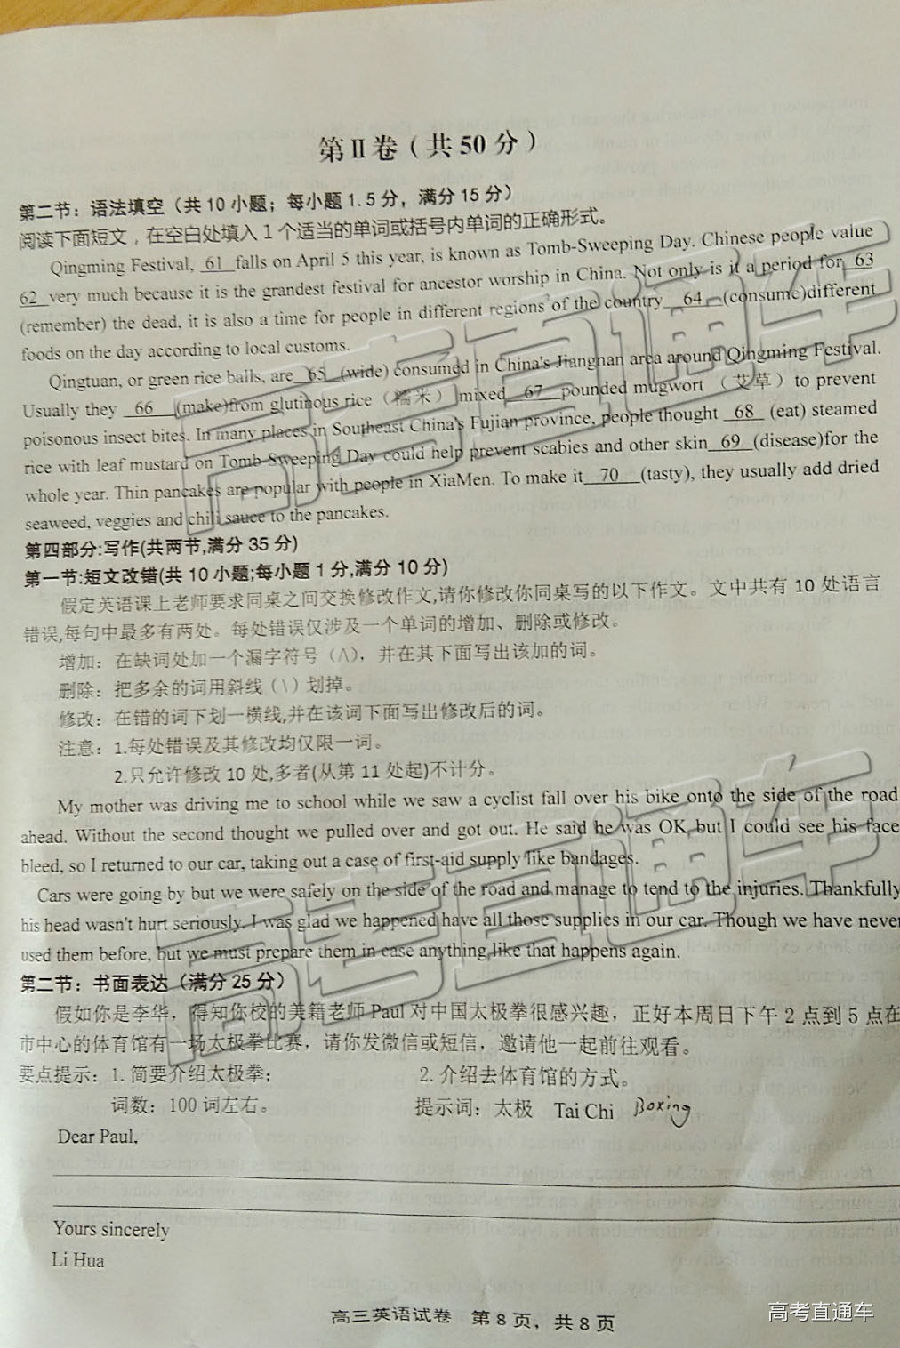 第Ⅱ卷（共50分）
第二节：语法填空（共10小题；每小题1.5分，满分15分）
阅读下面短文，在空白处填入1个适当的单词或括号内单词的正确形式。
Qingming Festival, 61 falls on April 5 this year, is known as Tomb-Sweeping Day. Chinese people value
62 very much because it is the grandest festival for ancestor worship in China. Not only is it a period for 63
(remember) the dead, it is also a time for people in different regions of the country 64 (consume)different
foods on the day according to local customs.
Qingtuan, or green rice balls, are 65 (wide) consumed in China's Jiangnan area around Qingming Festival.
Usually they 66 (make)from glutinous rice（糯米）mixed 67 pounded mugwort （艾草）to prevent
poisonous insect bites. In many places in Southeast China's Fujian province, people thought 68 (eat) steamed
rice with leaf mustard on Tomb-Sweeping Day could help prevent scabies and other skin 69 (disease)for the
whole year. Thin pancakes are popular with people in XiaMen. To make it 70 (tasty), they usually add dried
seaweed, veggies and chili sauce to the pancakes.
第四部分:写作(共两节,满分35分)
第一节:短文改错(共10小题;每小题1分,满分10分)
假定英语课上老师要求同桌之间交换修改作文,请你修改你同桌写的以下作文。文中共有10处语言
错误,每句中最多有两处。每处错误仅涉及一个单词的增加、删除或修改。
增加：在缺词处加一个漏字符号（∧），并在其下面写出该加的词。
删除：把多余的词用斜线（\）划掉。
修改：在错的词下划一横线,并在该词下面写出修改后的词。
注意：1.每处错误及其修改均仅限一词。
2.只允许修改10处,多者(从第11处起)不计分。
My mother was driving me to school while we saw a cyclist fall over his bike onto the side of the road
ahead. Without the second thought we pulled over and got out. He said he was OK but I could see his face
bleed, so I returned to our car, taking out a case of first-aid supply like bandages.
Cars were going by but we were safely on the side of the road and manage to tend to the injuries. Thankfully
his head wasn't hurt seriously. I was glad we happened have all those supplies in our car. Though we have never
used them before, but we must prepare them in case anything like that happens again.
第二节：书面表达（满分25分）
假如你是李华，得知你校的美籍老师Paul对中国太极拳很感兴趣，正好本周日下午2点到5点在
市中心的体育馆有一场太极拳比赛，请你发微信或短信，邀请他一起前往观看。
要点提示：1.简要介绍太极拳； 2.介绍去体育馆的方式。
词数：100词左右。 提示词：太极 Tai Chi Boxing
Dear Paul,
Yours sincerely
Li Hua
高三英语试卷 第8页，共8页
高考直通车
高考直通车
高考直通车